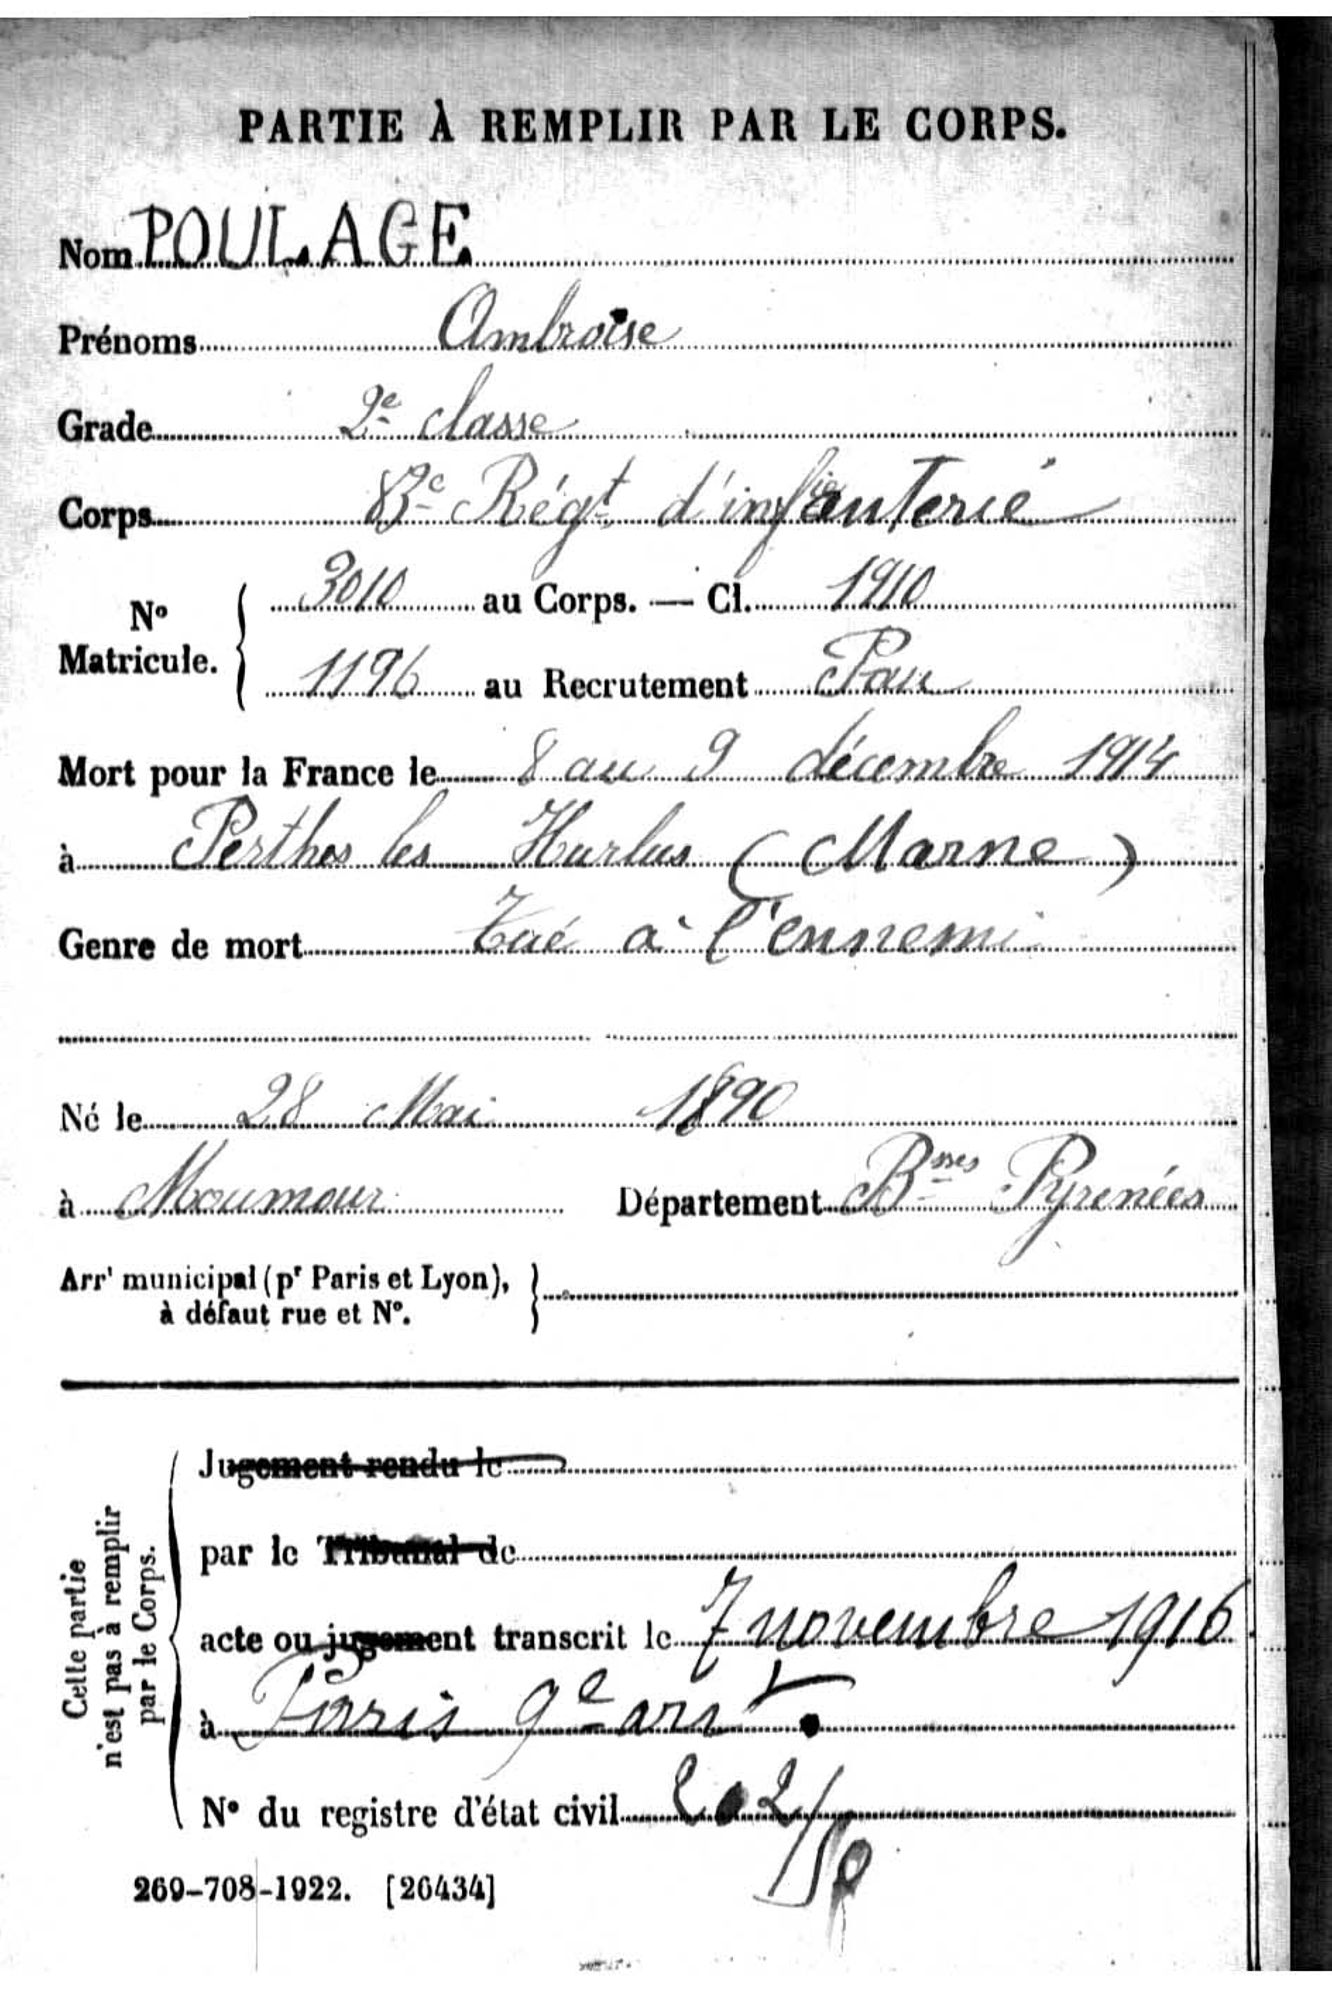 PARTIE À REMPLIR PAR LE CORPS.
Nom POULAGE
Prénoms Ambroise
Grade 2e classe
Corps Régt d'infanterie
3010 au Corps. — Cl. 1910
No Matricule.
1196 au Recrutement Pau
Mort pour la France le 8 au 9 décembre 1914
à Perthes les Hurlus (Marne)
Genre de mort Tué à l'ennemi
Né le 28 Mai 1890
à Moumour Département Bsses Pyrénées
Arrt municipal (pr Paris et Lyon),
à défaut rue et No.
Cette partie
n'est pas à remplir
par le Corps.
Jugement rendu le
par le Tribunal de
acte ou jugement transcrit le 7 novembre 1916
à Paris 9e arrt
No du registre d'état civil 202/
269-708-1922. [26434]